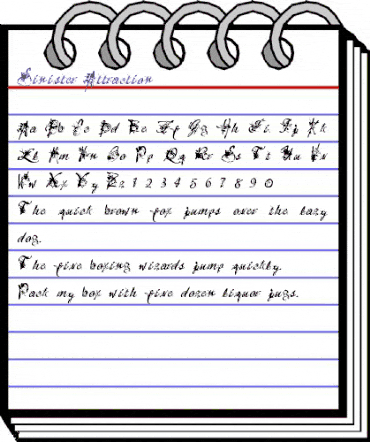 Sinister Attraction
Aa Bb Cc Dd Ee Ff Gg Hh Ii Jj Kk
Ll Mm Nn Oo Pp Qq Rr Ss Tt Uu Vv
Ww Xx Yy Zz 1 2 3 4 5 6 7 8 9 0
The quick brown fox jumps over the lazy
dog.
The five boxing wizards jump quickly.
Pack my box with five dozen liquor jugs.